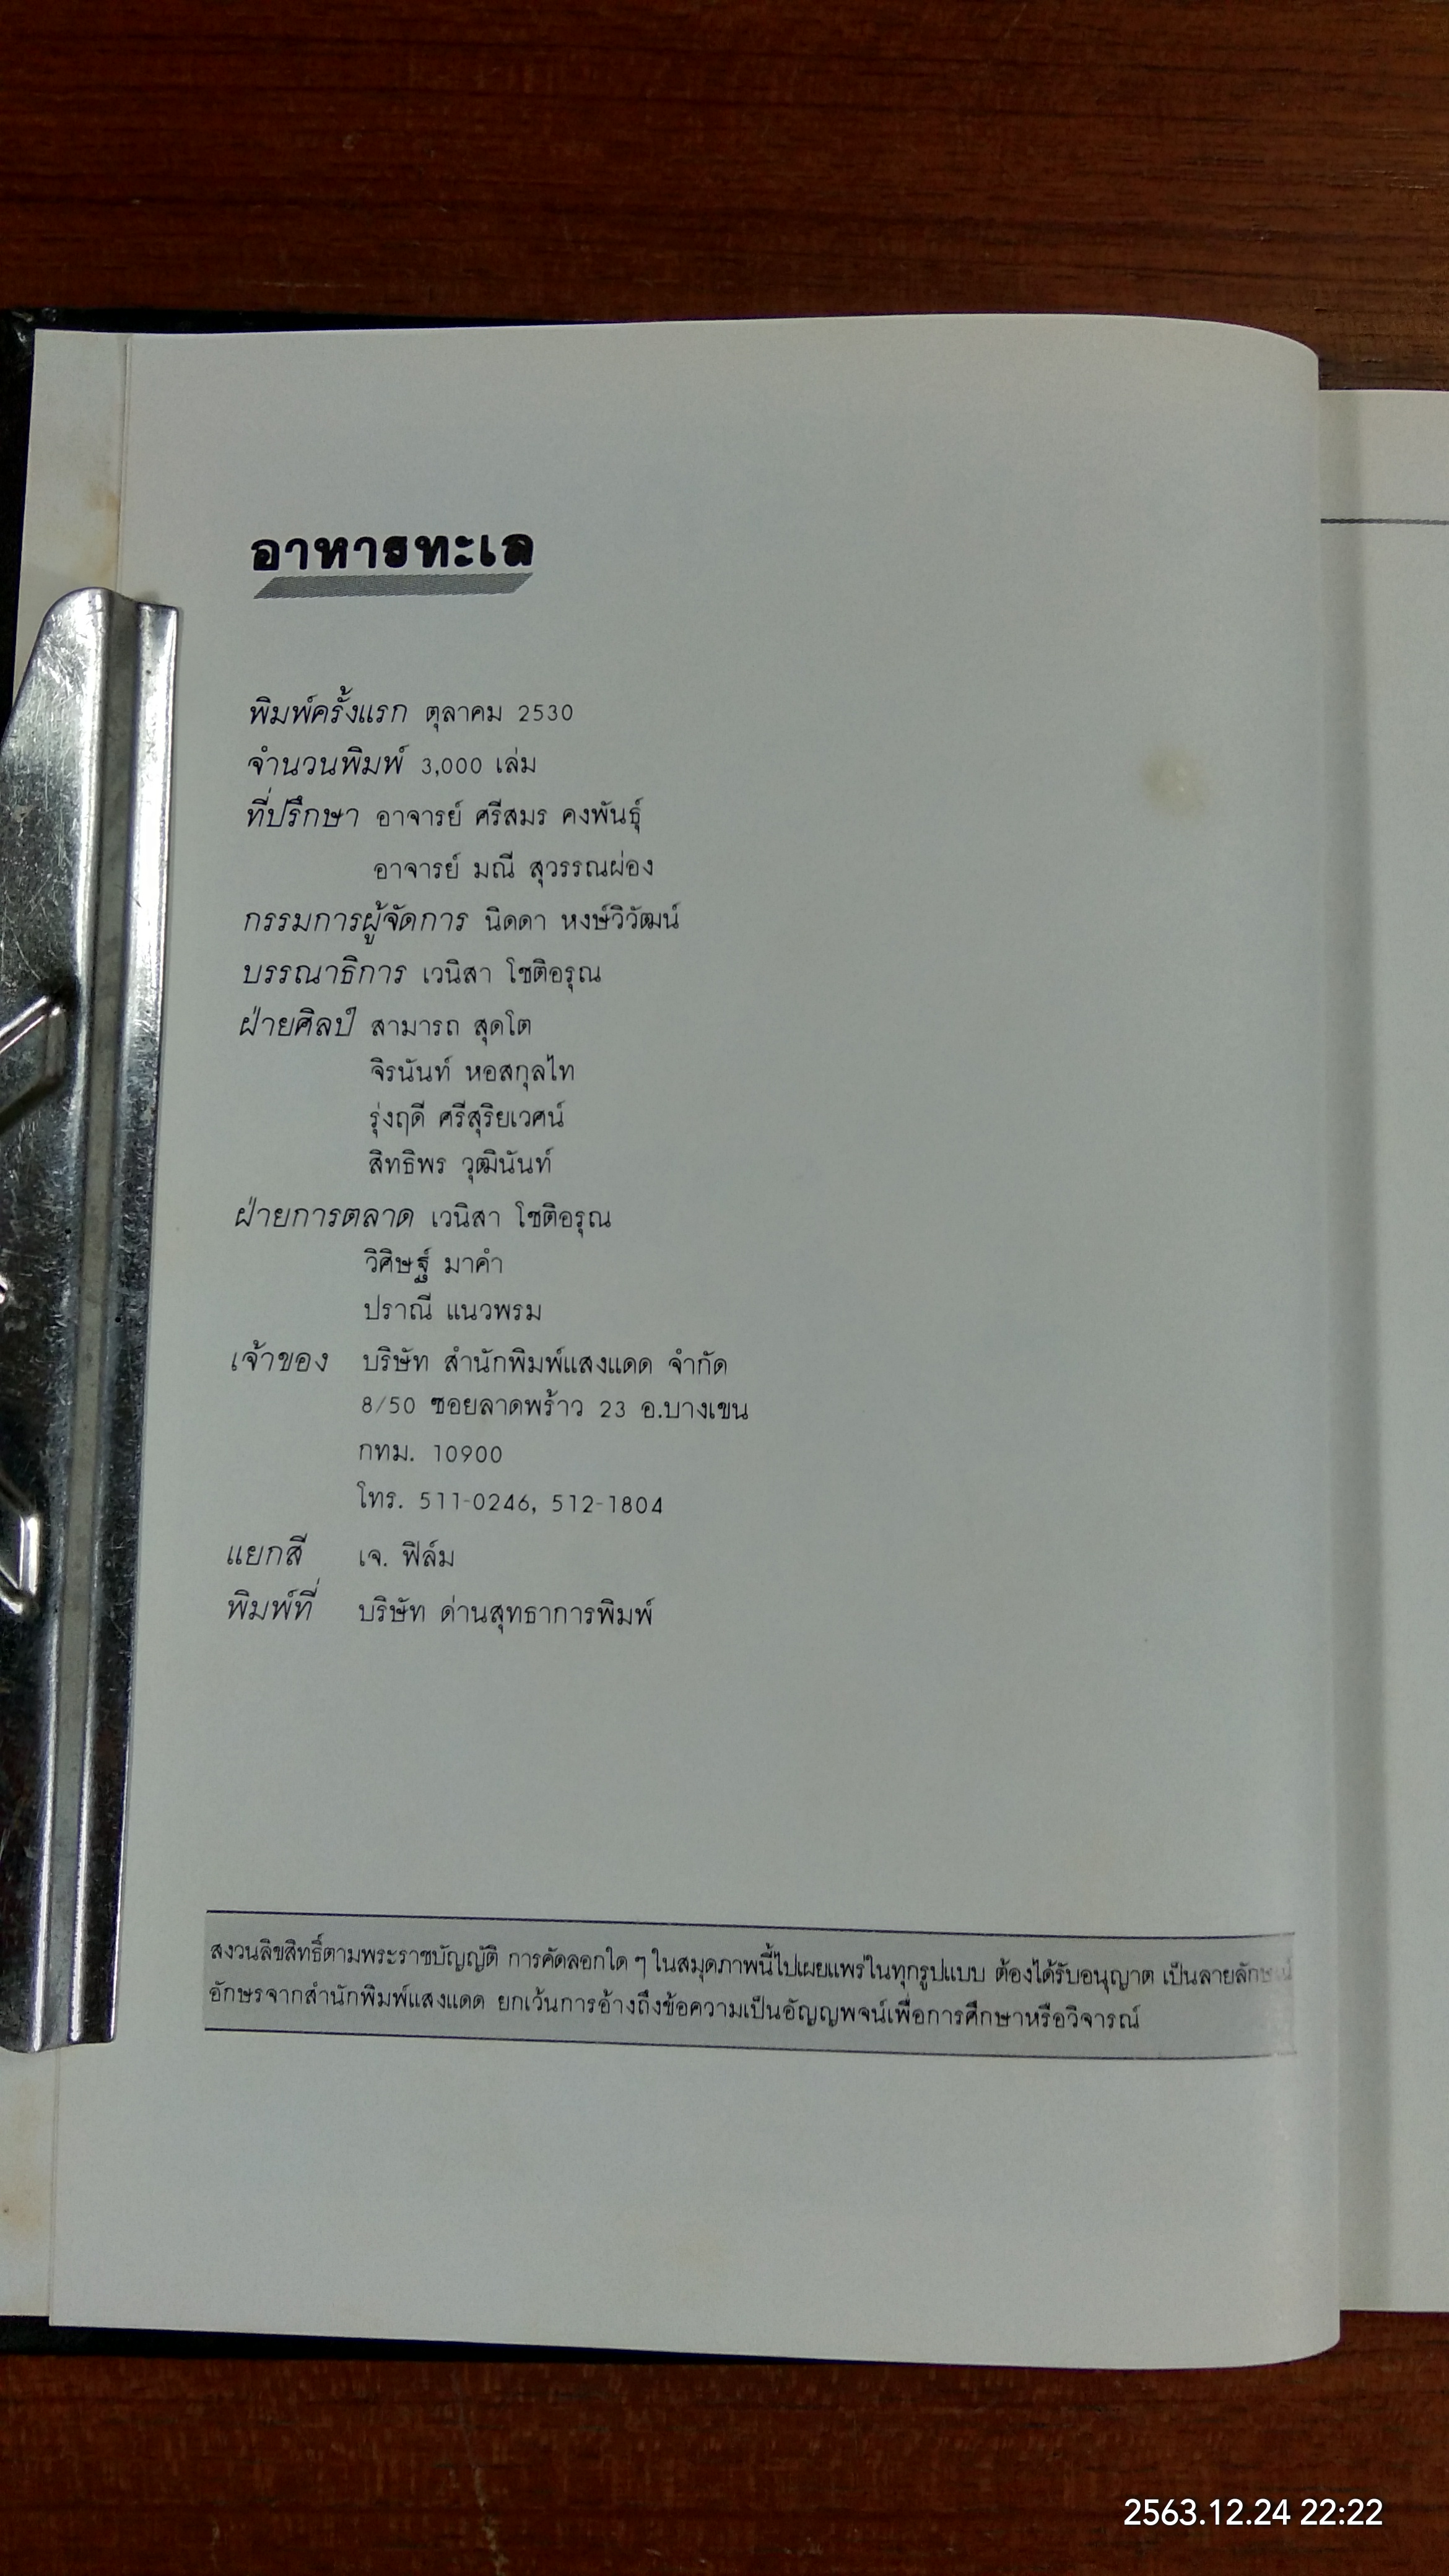 อาหารทะเล
พิมพ์ครั้งแรก ตุลาคม 2530
จำนวนพิมพ์ 3,000 เล่ม
ที่ปรึกษา อาจารย์ ศรีสมร คงพันธุ์
อาจารย์ มณี สุวรรณผ่อง
กรรมการผู้จัดการ นิดดา หงษ์วิวัฒน์
บรรณาธิการ เวนิสา โชติอรุณ
ฝ่ายศิลป์ สามารถ สุดโต
จิรนันท์ หอสกุลไท
รุ่งฤดี ศรีสุริยเวศน์
สิทธิพร วุฒินันท์
ฝ่ายการตลาด เวนิสา โชติอรุณ
วิศิษฐ์ มาคำ
ปราณี แนวพรม
เจ้าของ บริษัท สำนักพิมพ์แสงแดด จำกัด
8/50 ซอยลาดพร้าว 23 อ.บางเขน
กทม. 10900
โทร. 511-0246, 512-1804
แยกสี เจ. ฟิล์ม
พิมพ์ที่ บริษัท ด่านสุทธาการพิมพ์
สงวนลิขสิทธิ์ตามพระราชบัญญัติ การคัดลอกใด ๆ ในสมุดภาพนี้ไปเผยแพร่ในทุกรูปแบบ ต้องได้รับอนุญาต เป็นลายลักษณ์
อักษรจากสำนักพิมพ์แสงแดด ยกเว้นการอ้างถึงข้อความเป็นอัญญพจน์เพื่อการศึกษาหรือวิจารณ์
2563.12.24 22:22